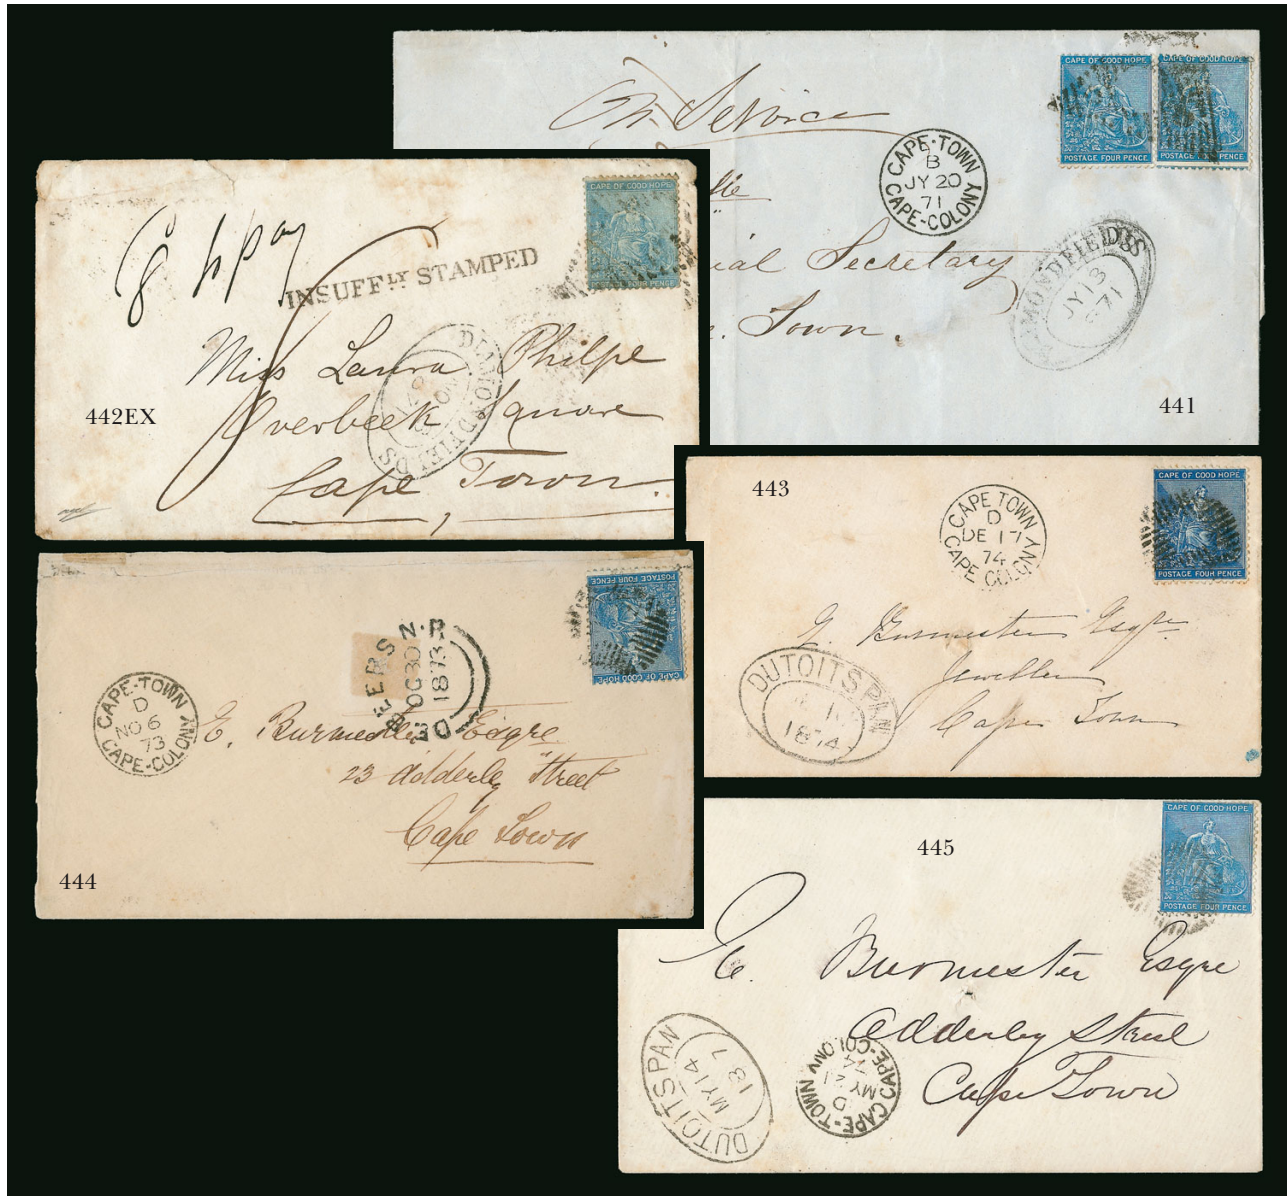 CAPE OF GOOD HOPE
POSTAGE FOUR PENCE
CAPE OF GOOD HOPE
POSTAGE FOUR PENCE
On Service
CAPE-TOWN
B
JY 20
71
CAPE-COLONY
ial Secretary
Town.
MONDFIELDS
JY 13
71
441
CAPE OF GOOD HOPE
POSTAGE FOUR PENCE
INSUFFLY STAMPED
Miss Laura Philpe
Overbeek Square
Cape Town.
DIAMONDFIELDS
442EX
443
CAPE OF GOOD HOPE
POSTAGE FOUR PENCE
CAPE TOWN
D
DE 17
74
CAPE COLONY
E. Burmester Esqre
Jeweller
Cape Town
DUTOITSPAN
1874
CAPE OF GOOD HOPE
POSTAGE FOUR PENCE
DE BEERS N.R
OC 30
1873
CAPE-TOWN
D
NO 6
73
CAPE-COLONY
E. Burmester Esqre
23 Adderley Street
Cape Town
444
CAPE OF GOOD HOPE
POSTAGE FOUR PENCE
445
E. Burmester Esqre
Adderley Street
Cape Town
DUTOITSPAN
MY 14
187
CAPE-TOWN
D
MY 21
74
CAPE-COLONY